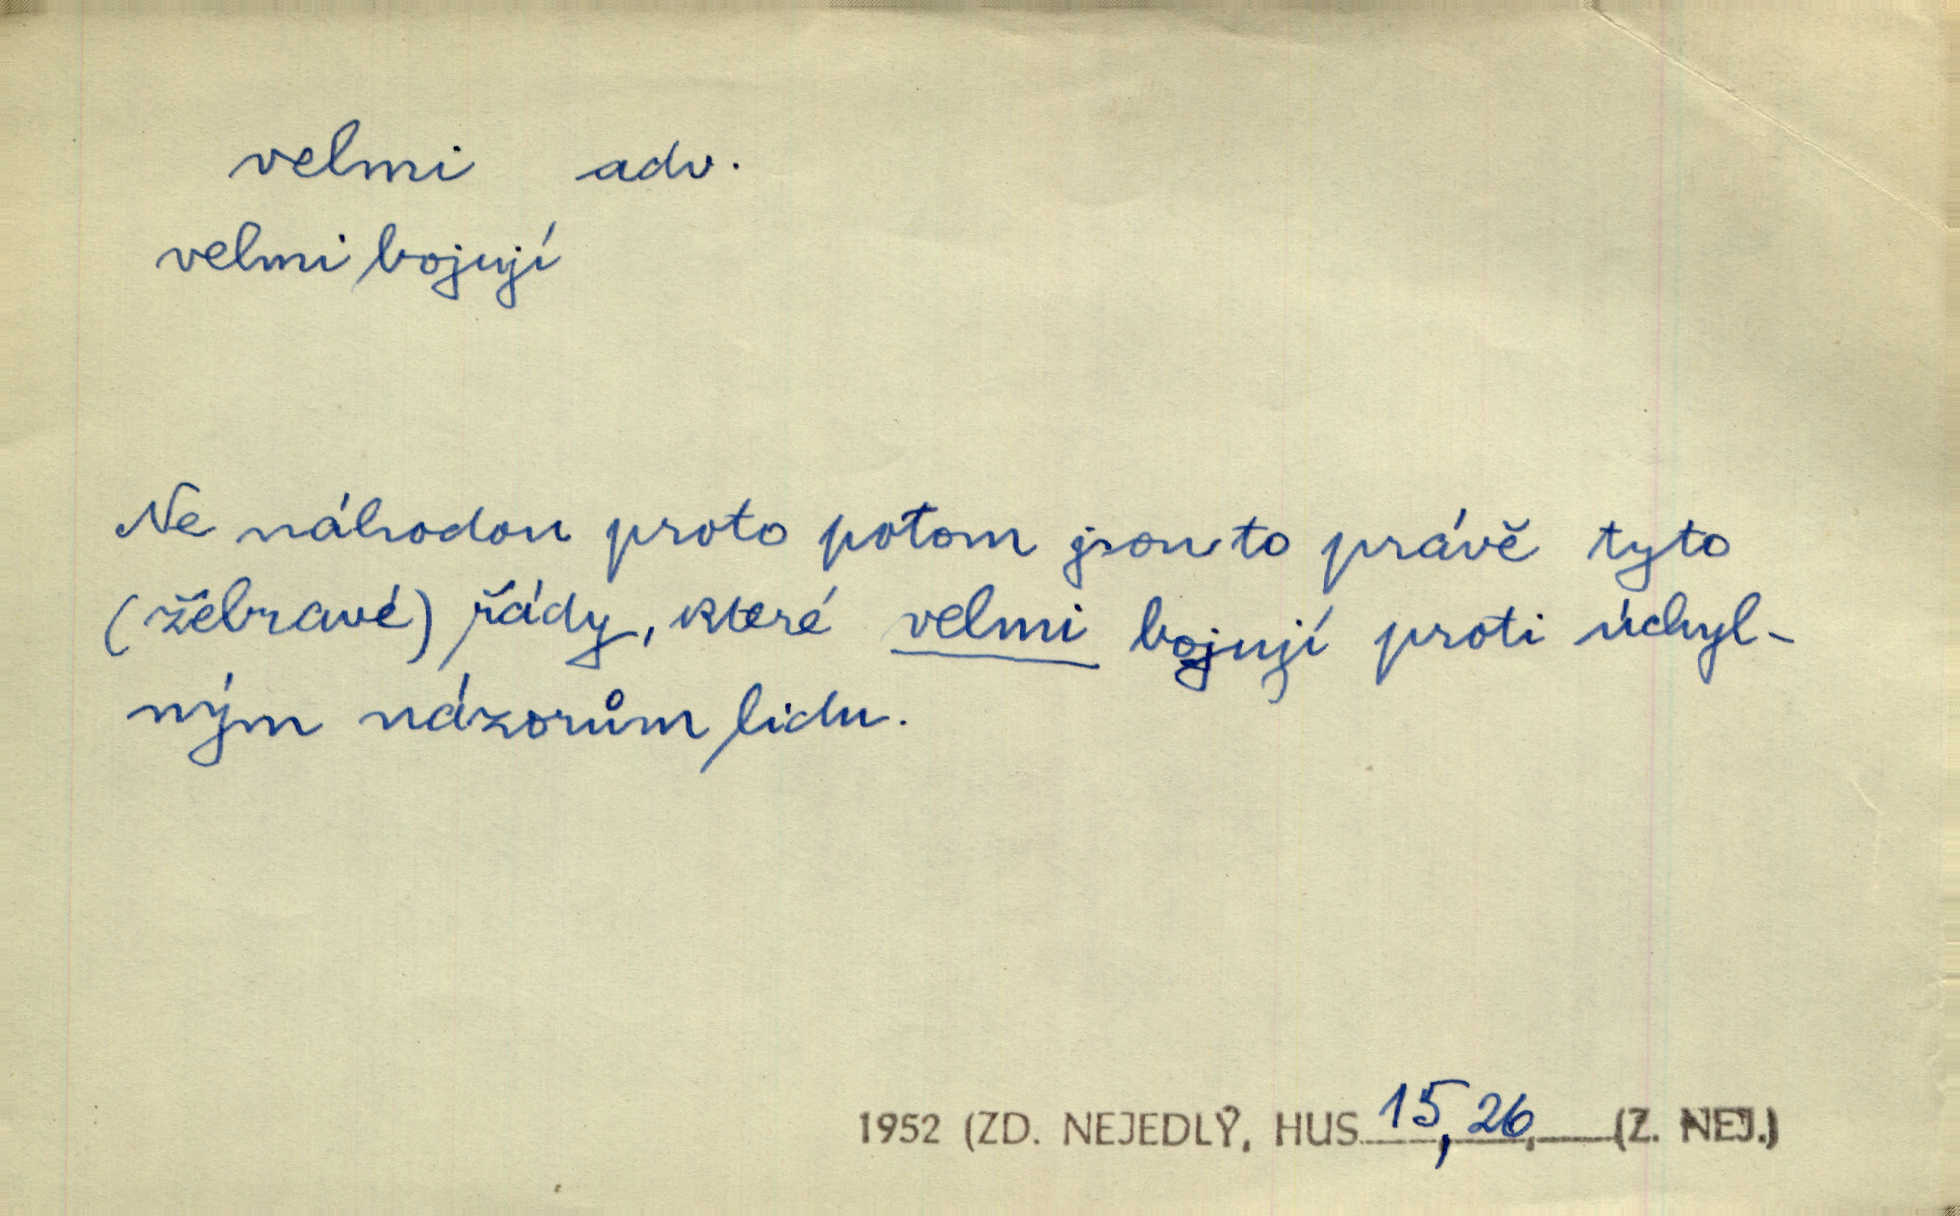 velmi adv.
velmi bojují
Ne náhodou proto potom jsou to právě tyto
(žebravé) řády, které velmi bojují proti úchyl-
ným názorům lidu.
1952 (ZD. NEJEDLÝ, HUS 15, 26. (Z. NEJ.)